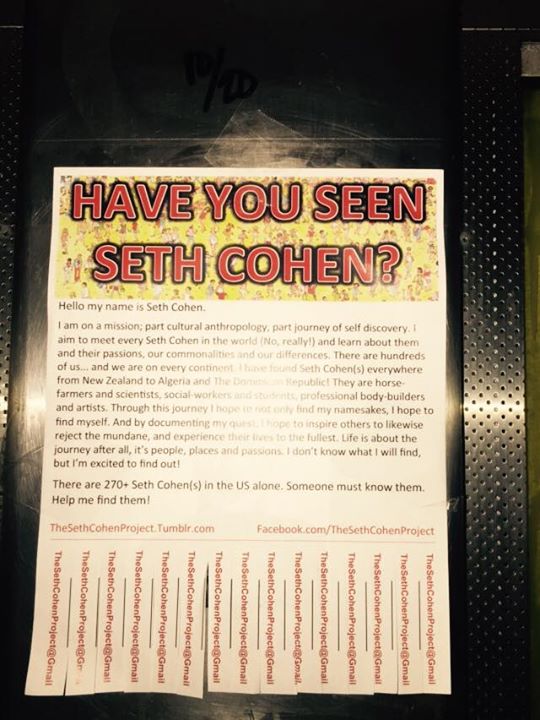 10/20
HAVE YOU SEEN
SETH COHEN?
Hello my name is Seth Cohen.
I am on a mission; part cultural anthropology, part journey of self discovery. I
aim to meet every Seth Cohen in the world (No, really!) and learn about them
and their passions, our commonalities and our differences. There are hundreds
of us... and we are on every continent. I have found Seth Cohen(s) everywhere
from New Zealand to Algeria and The Dominican Republic! They are horse-
farmers and scientists, social-workers and students, professional body-builders
and artists. Through this journey I hope to not only find my namesakes, I hope to
find myself. And by documenting my quest, I hope to inspire others to likewise
reject the mundane, and experience their lives to the fullest. Life is about the
journey after all, it's people, places and passions. I don't know what I will find,
but I'm excited to find out!
There are 270+ Seth Cohen(s) in the US alone. Someone must know them.
Help me find them!
TheSethCohenProject.Tumblr.com Facebook.com/TheSethCohenProject
TheSethCohenProject@Gmail
TheSethCohenProject@Gmail
TheSethCohenProject@Gmail
TheSethCohenProject@Gmail
TheSethCohenProject@Gmail
TheSethCohenProject@Gmail
TheSethCohenProject@Gmail
TheSethCohenProject@Gmail
TheSethCohenProject@Gmail
TheSethCohenProject@Gmail
TheSethCohenProject@Gmail
TheSethCohenProject@Gmail
TheSethCohenProject@Gmail
TheSethCohenProject@Gmail
TheSethCohenProject@Gmail